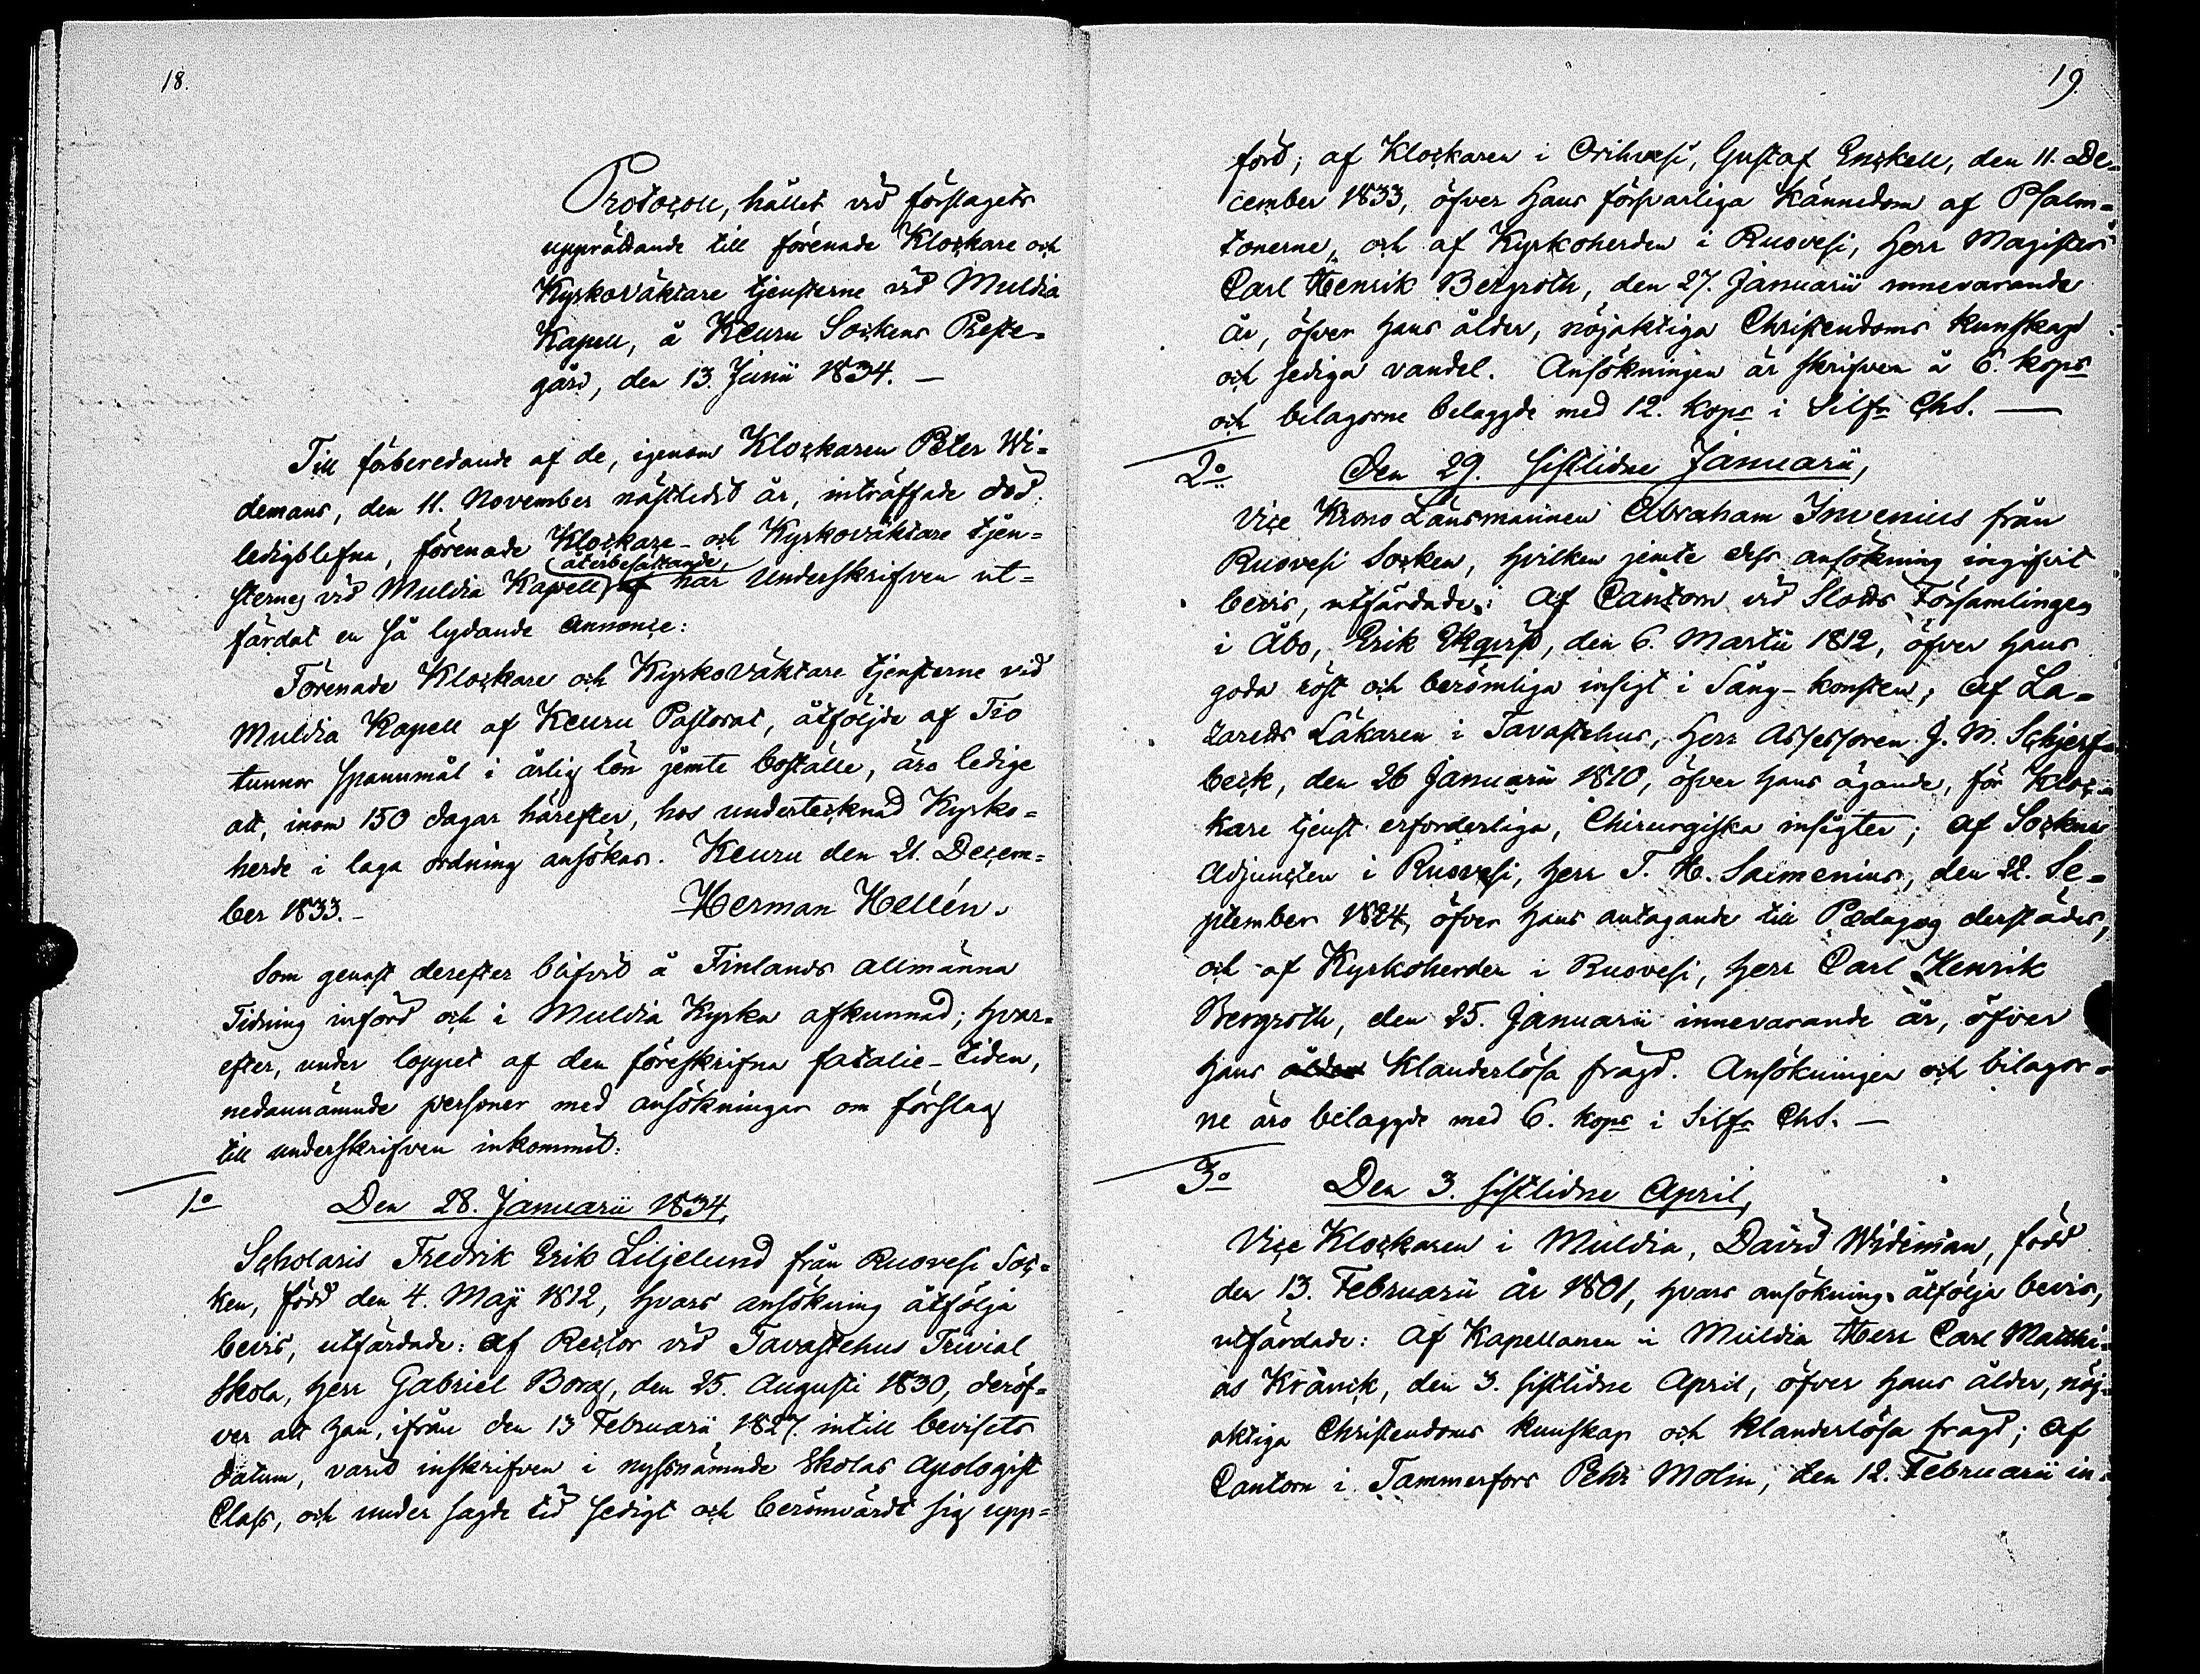 18.
Protocoll, hållet vid förslagets
upprättande till förenade Klockare och
Kyrkoväktare tjensterne vid Muldia
Kapell, å Keuru Sockens Preste-
gård, den 13. Junii 1834. —
Till förberedande af de, igenom Klockaren Peter Wi-
demans, den 11. November nästledit år, inträffade död
ledigblefne, förenade Klockare- och Kyrkoväktare tjen-
sternes vid Muldia Kapell återbesättande har Underskrifven ut-
färdat en så lydande Annonce:
Förenade Klockare och Kyrkoväktare tjensterne vid
Muldia Kapell af Keuru Pastorat, åtföljde af Tio
tunnor Spannmål i årlig lön jemte boställe, äro ledige
att, inom 150 dagar härefter, hos undertecknad Kyrko-
herde i laga ordning ansökas. Keuru den 21. Decem-
ber 1833.- Herman Hellén.
Som genast derefter blifvit å Finlands Allmänna
Tidning införd och i Muldia Kyrka afkunnad; hvar-
efter, under loppet af den föreskrifna fatalie-tiden,
nedannämnde personer med ansökningar om förslag
till underskrifven inkommit:
1o Den 28. Januarii 1834,
Scholaris Fredrik Erik Liljelund från Ruovesi Soc-
ken, född den 4. Maji 1812, hvars ansökning åtfölja
bevis, utfärdade: af Rector vid Tavastehus Trivial
Skola, Herr Gabriel Borg, den 25. Augusti 1830, deröf-
ver att han, ifrån den 13 Februarii 1827. intill bevisets
datum, varit inskrifven i nyssnämnde Skolas Apologist
Class, och under sagde tid sedigt och berömvärdt sig upp-
19.
förd; af Klockaren i Orihvesi, Gustaf Enckell, den 11. De-
cember 1833, öfver Hans försvarliga Kännedom af Psalm-
tonerne, och af Kyrkoherden i Ruovesi, Herr Magister
Carl Henrik Bergroth, den 27. Januarii innevarande
År, öfver hans ålder, nöjaktiga Christendoms kunskap
och sediga vandel. Ansökningen är skrifven å 6. kops
och bilagorne belaggde med 12. kops i Silfr Chs. —
2o Den 29. sistlidne Januarii,
Vice Krono Länsmannen Abraham Invenius från
Ruovesi Socken, hvilken jemte dess ansökning ingifvit
bevis, utfärdade: Af Cantorn vid Slotts Församlingen
i Åbo, Erik Ekqvist, den 6. Martii 1812, öfver hans
goda röst och berömliga insigt i Sång-konsten; af La-
zaretts Läkaren i Tavastehus, Herr Assessoren J. M. Schjerf-
beck, den 26 Januarii 1810, öfver hans ägande, för Kloc-
kare tjenst erforderliga, Chirurgiska insigter; af Sockne
Adjuncten i Ruovesi, Herr T. H. Saimenius, den 22. Se-
ptember 1824, öfver hans antagande till Pædagog derstädes,
och af Kyrkoherden i Ruovesi, Herr Carl Henrik
Bergroth, den 25. Januarii innevarande år, öfver
hans ålder Klanderlösa frägd. Ansökningen och bilagor-
ne äro belaggde med 6. kops i Silfr Chs. —
3o Den 3. sistlidne April,
Vice Klockaren i Muldia, David Wideman, född
den 13. Februarii År 1801, hvars ansökning åtfölja bevis,
utfärdade: Af Kapellanen i Muldia Herr Carl Matthi-
as Kränik, den 3. sistlidne April, öfver hans ålder, nöj-
aktiga Christendoms kunskap och klanderlösa frägd; af
Cantorn i Tammerfors Pehr Molin, den 12. Februarii in-